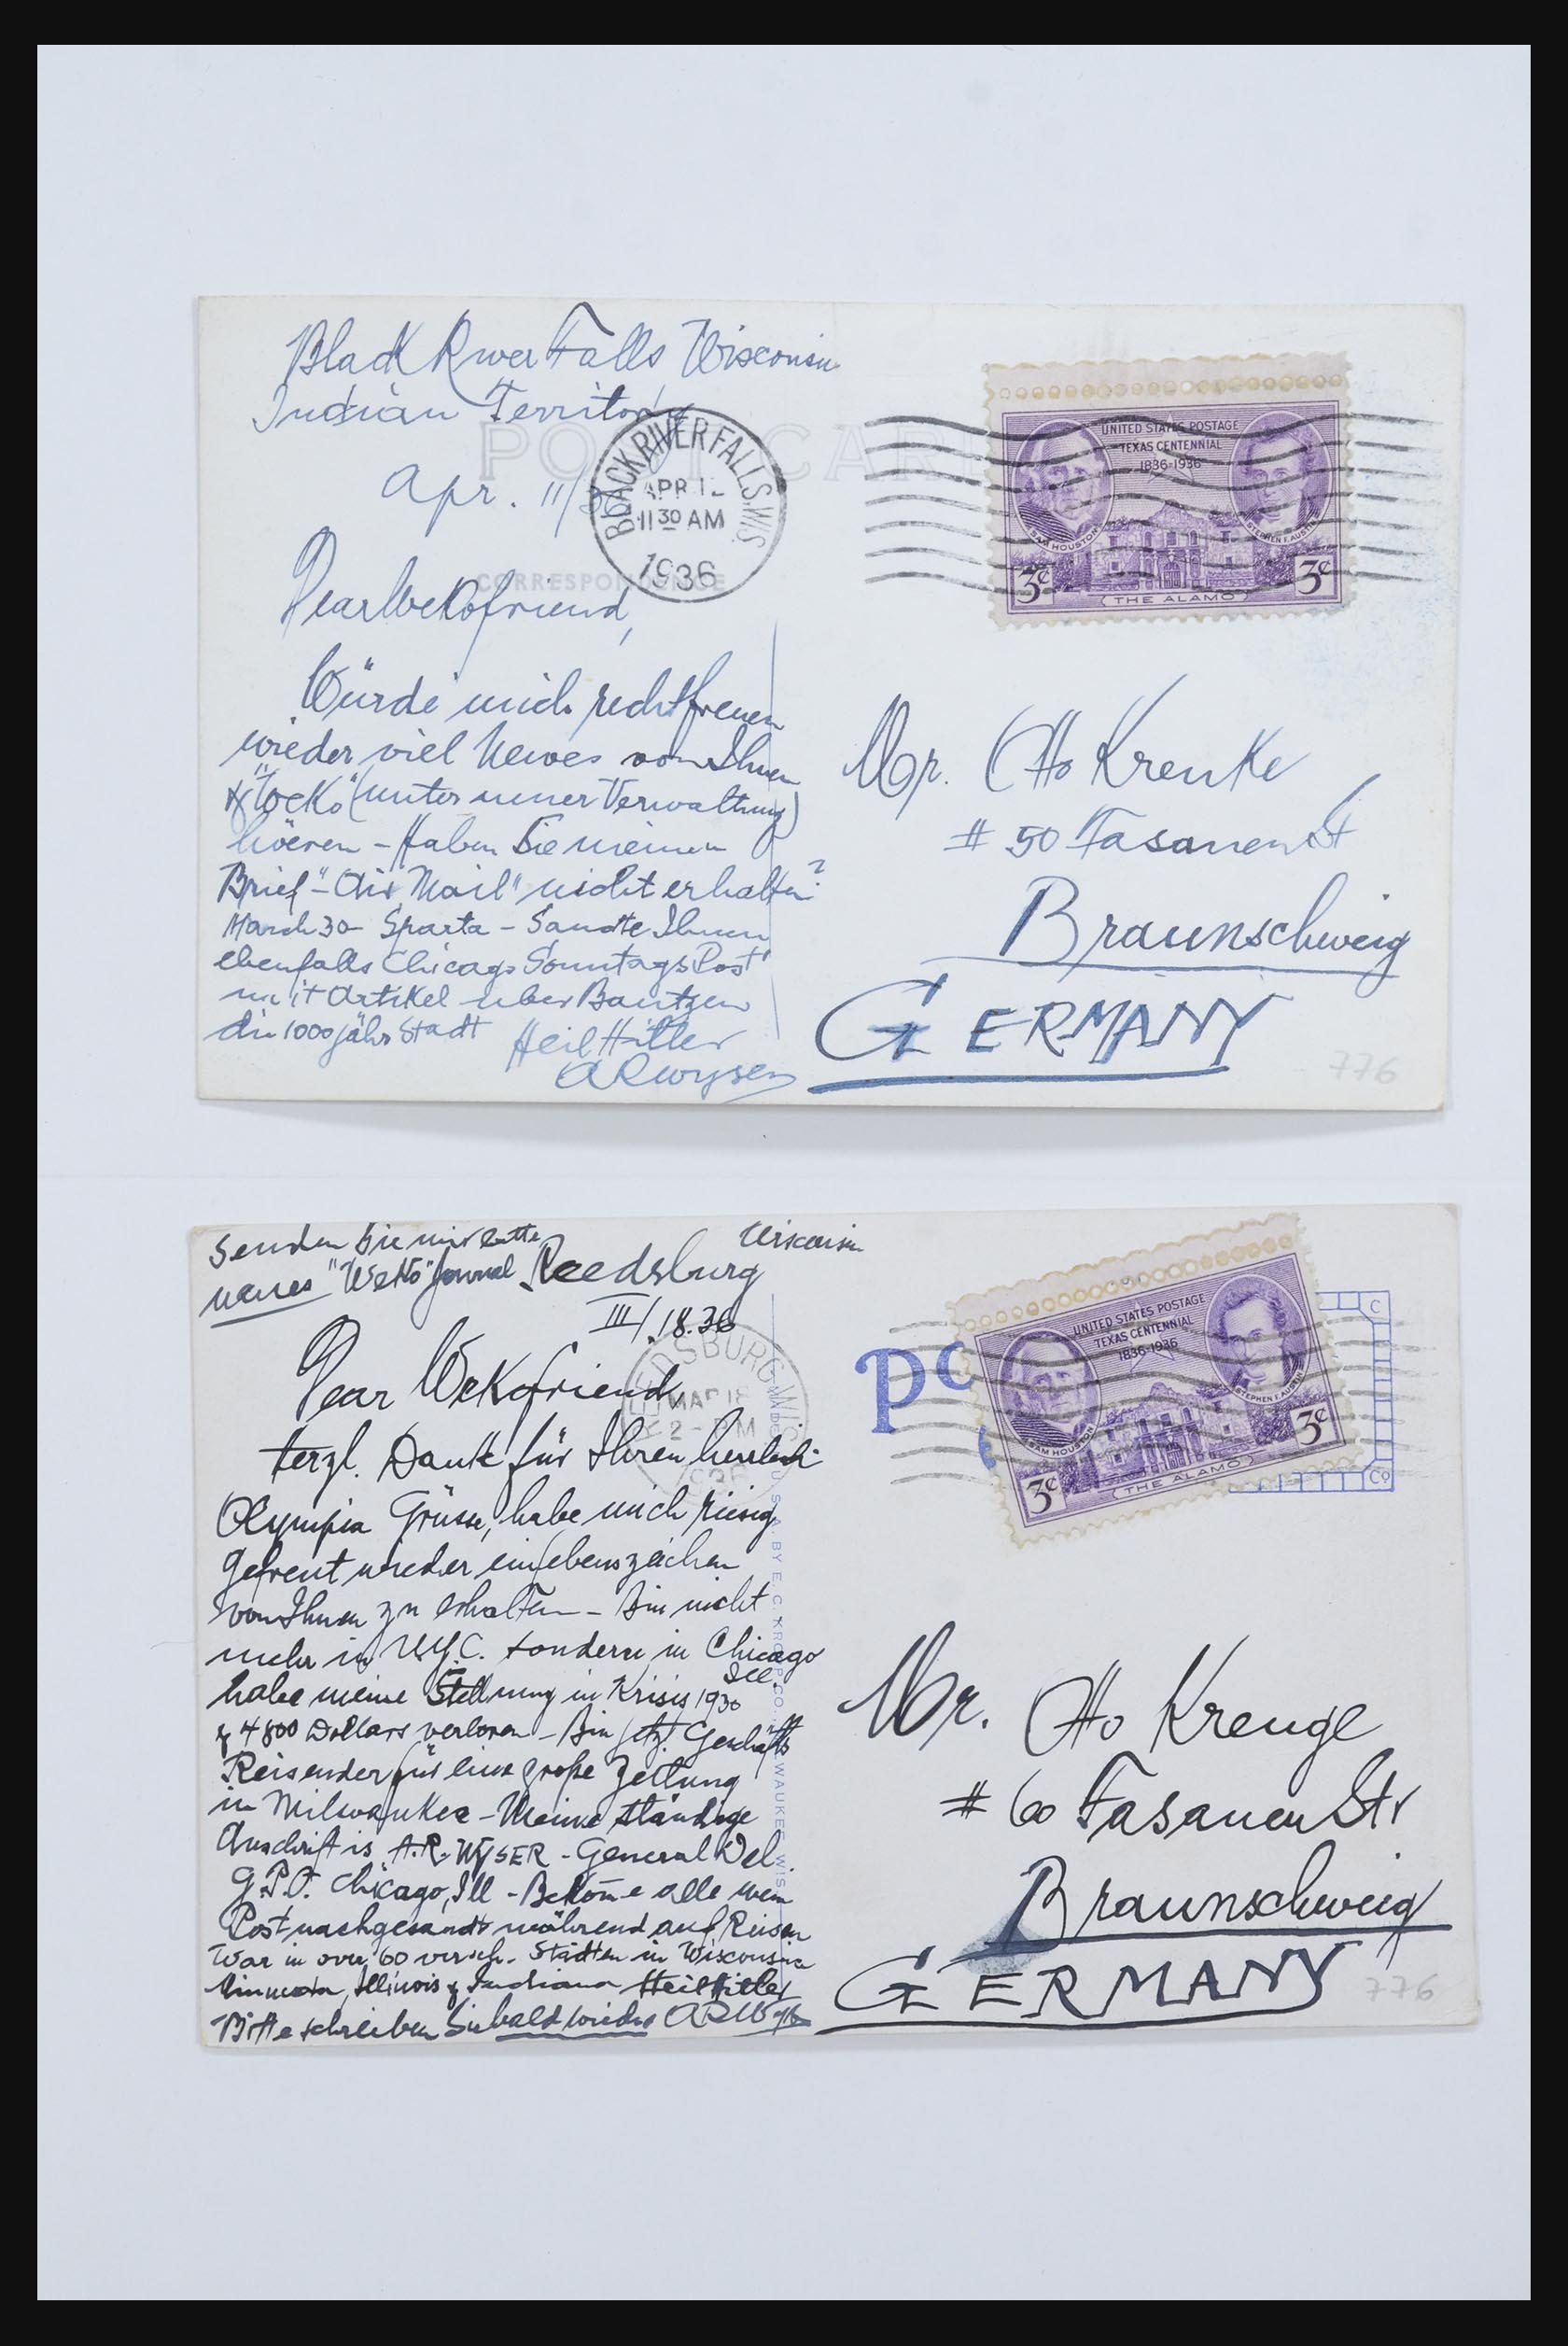 Black River Falls Wisconsin
Indian Territory
POST CARD
Apr. 11/36
BLACK RIVER FALLS, WIS.
APR 12
11 30 AM
1936
CORRESPONDENCE
Dear Wekofriend,
Würde mich recht freuen
wieder viel Neues von Ihnen
& "WeKo" (unter neuer Verwaltung)
höeren - Haben Sie meinen
Brief - "Air Mail" nicht erhalten?
March 30 - Sparta - Sandte Ihnen
ebenfalls Chicago Sonntags Post
mit Artikel über Bautzen
die 1000 jähr Stadt Heil Hitler
ARWyser
UNITED STATES POSTAGE
TEXAS CENTENNIAL
1836-1936
SAM HOUSTON
STEPHEN F. AUSTIN
3¢ 3¢
(THE ALAMO)
Mr. Otto Krenke
# 50 Fasanen St
Braunschweig
GERMANY
776
Senden Sie mir bitte
neues "WeKo" Journal Reedsburg Wisconsin
III/.18.36
REEDSBURG, WIS.
MAR 18
2 - PM
1936
Dear Wekofriend
Herzl. Dank für Ihren herrlich
Olympia Grüsse, habe mich riesig
gefreut wieder ein Lebenszeichen
von Ihnen zu erhalten - Bin nicht
mehr in N.Y.C. sondern in Chicago
Ill.
habe meine Stellung in Krisis 1930
& 4800 Dollars verloren - Bin jetzt Geschäfts
Reisender für eine große Zeitung
in Milwaukee - Meine ständige
Anschrift is A.R. WYSER - General Del.
G.P.O. Chicago, Ill - Bekom̄e alle mein
Post nachgesandt während auf Reisen
War in over 60 versch. Städten in Wisconsin
Minnesota, Illinois & Indiana Heil Hitler
Bitte schreiben Sie bald wieder ARWyser
U.S.A. BY E. C. KROPP CO. MILWAUKEE, WIS.
PO
C
Co
UNITED STATES POSTAGE
TEXAS CENTENNIAL
1836-1936
SAM HOUSTON
STEPHEN F. AUSTIN
3¢ 3¢
(THE ALAMO)
Mr. Otto Krenge
# 60 Fasanen Str
Braunschweig
GERMANY
776